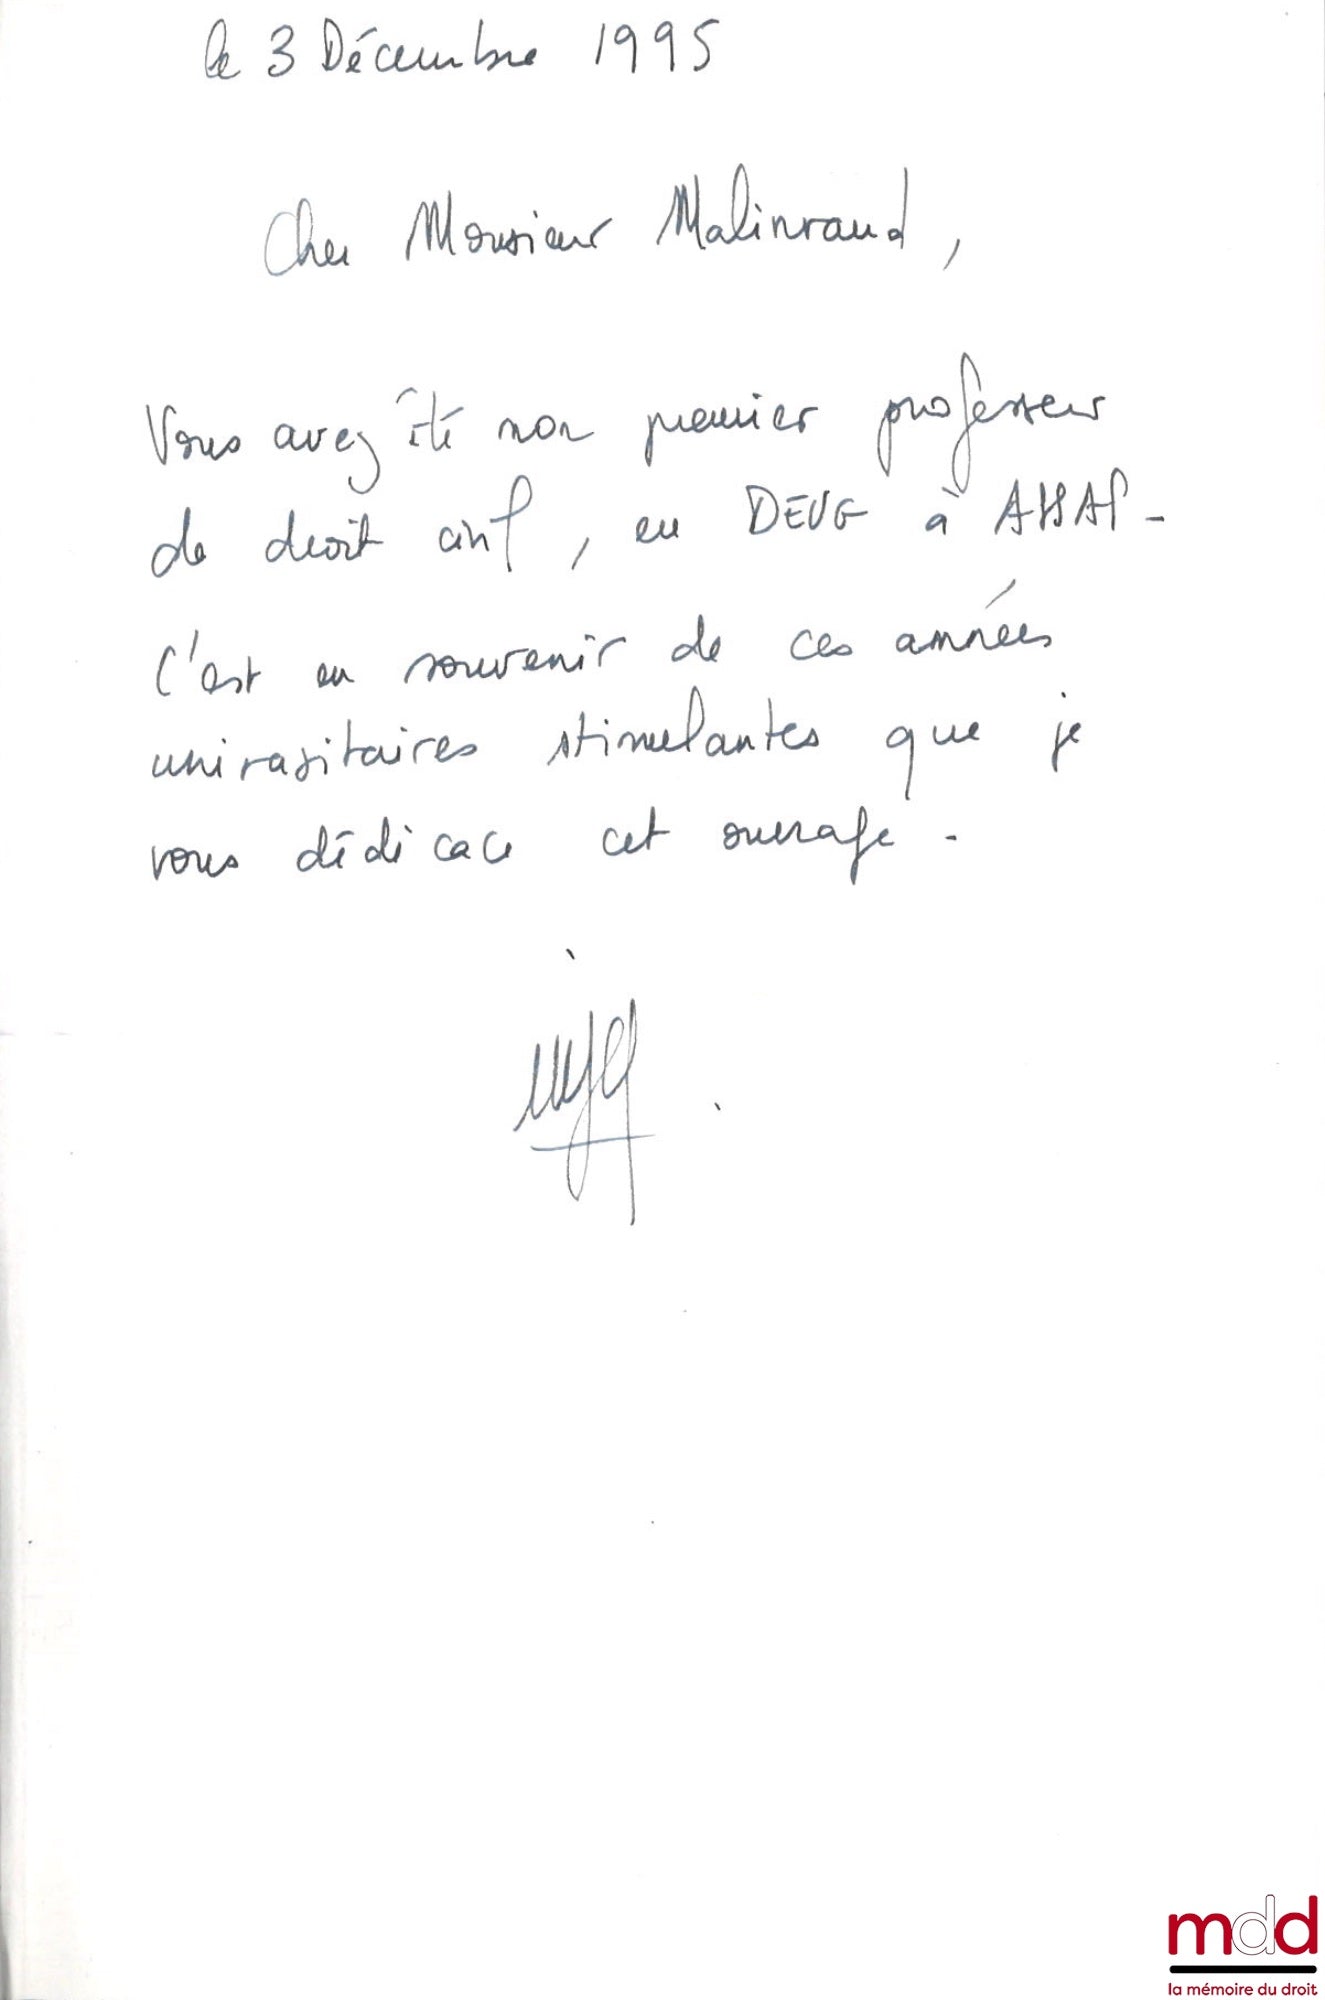 le 3 Décembre 1995
Cher Monsieur Malinvaud,
Vous avez été mon premier professeur
de droit civil, en DEUG à ASSAS -
C'est en souvenir de ces années
universitaires stimulantes que je
vous dédicace cet ouvrage -
mdd
la mémoire du droit